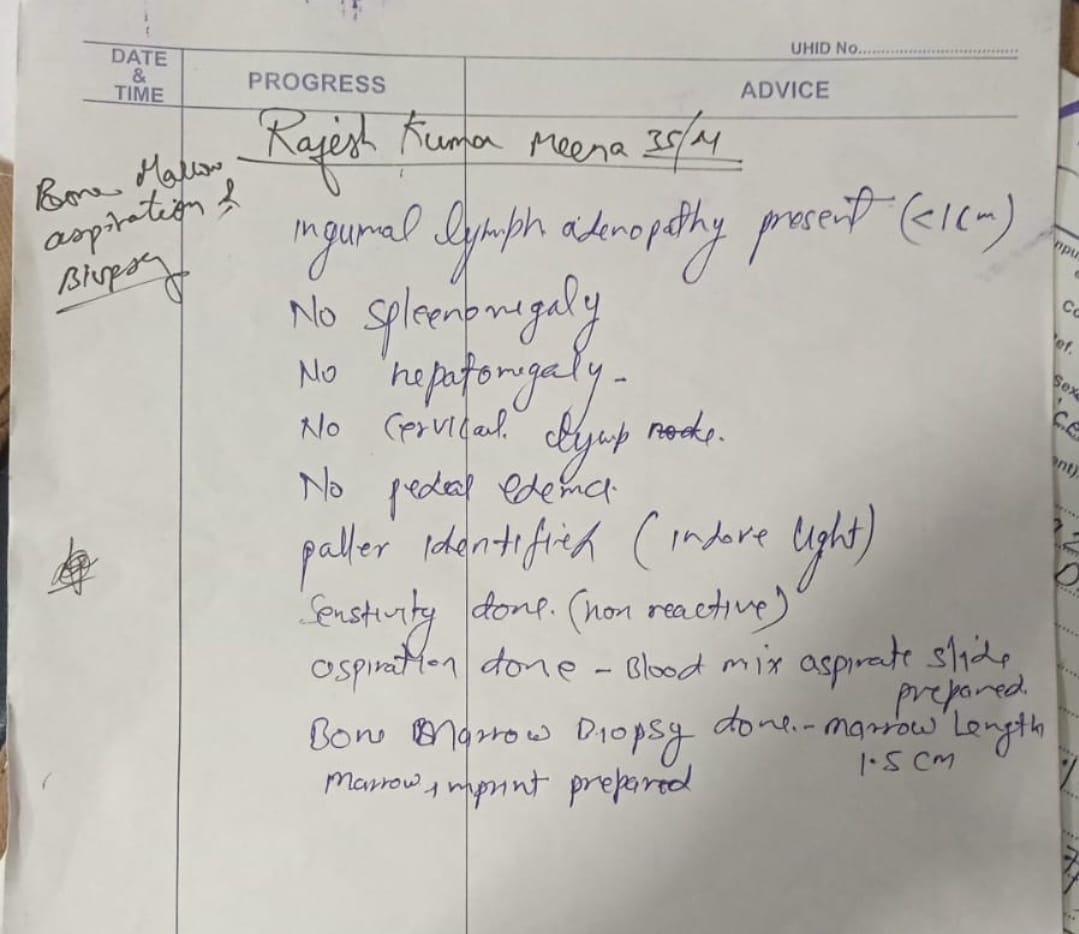 UHID No.
DATE & TIME
PROGRESS
ADVICE
Rajesh Kumar Meena 35/M
Bone Mallow
aspiration &
Biopsy
ingumal lymph adenopathy present (<1cm)
No spleenomegaly
No hepatomegaly -
No Cervical. lymp node.
No pedeal edema.
paller identified (indore light)
Senstivity done. (non reactive)
aspiration done - Blood mix aspirate slide
prepared.
Bone Marrow Biopsy done. - marrow Length
1.5 cm
Marrow imprint prepared